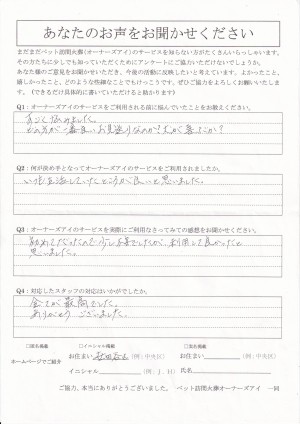 あなたのお声をお聞かせください
まだまだペット訪問火葬(オーナーズアイ)のサービスを知らない方がたくさんいらっしゃいます。
その方たちに少しでも知っていただくためにアンケートにご協力いただけないでしょうか。
あなた様のご意見をお聞かせいただき、今後の活動に反映したいと考えています。よかったこと、
嬉しかったこと、どのような些細なことでもけっこうです。ぜひご協力をよろしくお願いいたします。
(できるだけ具体的に書いていただけると助かります)
Q1:オーナーズアイのサービスをご利用される前に悩んでいたことをお教えください。
すごく悩みました。
どの方が一番良いお見送りなのか?
Q2:何が決め手となってオーナーズアイのサービスをご利用されましたか。
いつも生活していたところが良いと思いました。
Q3:オーナーズアイのサービスを実際にご利用なさってみての感想をお聞かせください。
初めてだったので少し不安でしたが、利用して良かったと
思いました。
Q4:対応したスタッフの対応はいかがでしたか。
全てが最高でした。
ありがとうございました。
□匿名掲載 □イニシャル掲載 □実名掲載
ホームページでご紹介 お住まい (例:中央区) お住まい (例:中央区)
イニシャル (例:J.H) 氏名
ご協力、本当にありがとうございました。 ペット訪問火葬オーナーズアイ 一同